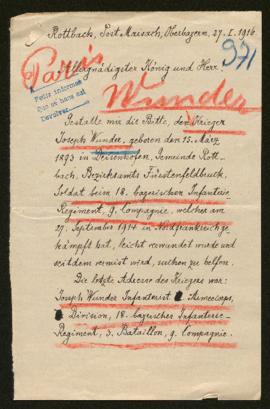 Rottbach, Post Maisach, Oberbayern, 27. I. 1916.
971
Paris
Allergnädigster König und Herr.
Petit informes
Wunder
Ich stelle mir die Bitte, den Krieger
Joseph Wunder, geboren den 15. März
1893 in Deisenhofen, Gemeinde Rott-
bach, Bezirksamts Fürstenfeldbruck,
Soldat beim 18. bayerischen Infanterie
Regiment, 9. Compagnie, welcher am
27. September 1914 in Nordfrankreich ge-
kämpft hat, leicht verwundet wurde und
seitdem vermisst wird, suchen zu helfen.
Die letzte Adresse des Kriegers war:
Joseph Wunder Infanterist Armeecorps,
Division, 18. bayerisches Infanterie-
Regiment, 3. Bataillon, 9. Compagnie.